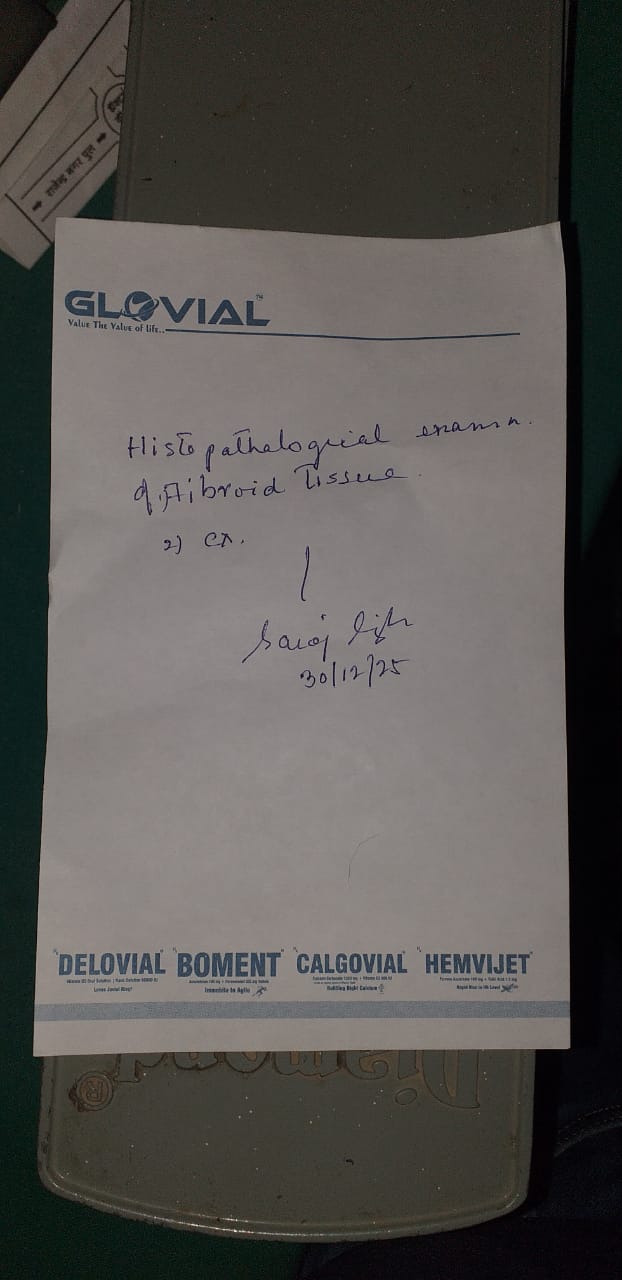 राजेन्द्र नगर पुल
GLOVIAL™
Value The Value of life..
Histopathological examn.
of Fibroid Tissue.
2) CX.
Saroj
30/12/25
"DELOVIAL" "BOMENT" "CALGOVIAL" "HEMVIJET"
Immobile to Agile
Building Right Calcium
Diamond ®